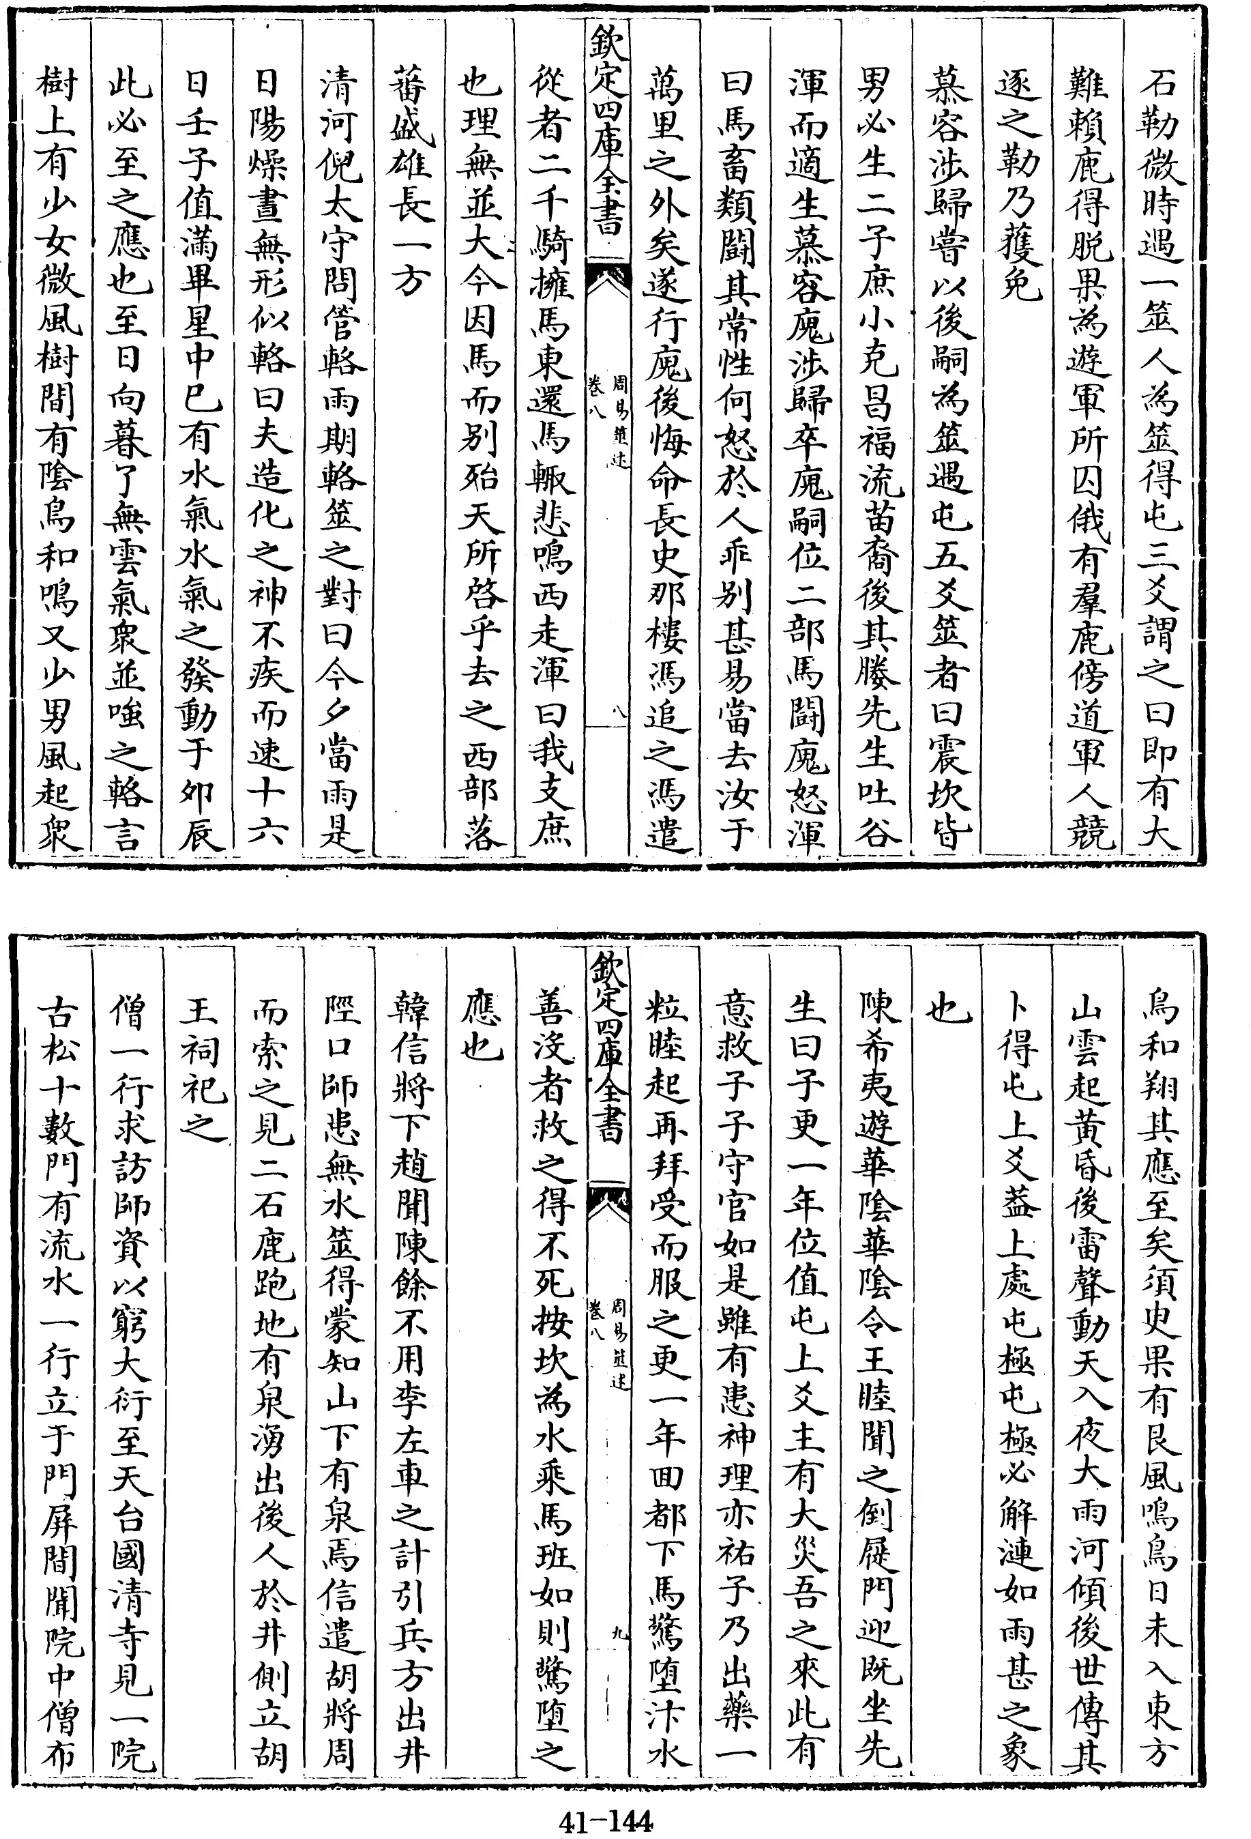 石勒微時遇一筮人為筮得屯三爻謂之曰即有大
難賴鹿得脱果為遊軍所囚俄有羣鹿傍道軍人競
逐之勒乃獲免
慕容涉歸嘗以後嗣為筮遇屯五爻筮者曰震坎皆
男必生二子庶小克昌福流苗裔後其媵先生吐谷
渾而適生慕容廆涉歸卒廆嗣位二部馬鬬廆怒渾
曰馬畜類鬬其常性何怒於人乖别甚易當去汝于
萬里之外矣遂行廆後悔命長史那樓馮追之馮遣
欽定四庫全書
周易筮述
卷八
八
從者二千騎擁馬東還馬輙悲鳴西走渾曰我支庶
也理無並大今因馬而别殆天所啓乎去之西部落
蕃盛雄長一方
清河倪太守問管輅雨期輅筮之對曰今夕當雨是
日陽燥晝無形似輅曰夫造化之神不疾而速十六
日壬子值滿畢星中已有水氣水氣之發動于夘辰
此必至之應也至日向暮了無雲氣衆並嗤之輅言
樹上有少女微風樹間有陰鳥和鳴又少男風起衆
鳥和翔其應至矣須臾果有艮風鳴鳥日未入東方
山雲起黄昏後雷聲動天入夜大雨河傾後世傳其
卜得屯上爻葢上處屯極屯極必解漣如雨甚之象
也
陳希夷遊華陰華陰令王睦聞之倒屣門迎既坐先
生曰子更一年位值屯上爻主有大災吾之來此有
意救子子守官如是雖有患神理亦祐子乃出藥一
粒睦起再拜受而服之更一年囬都下馬驚堕汴水
欽定四庫全書
周易筮述
卷八
九
善沒者救之得不死按坎為水乘馬班如則驚堕之
應也
韓信將下趙聞陳餘不用李左車之計引兵方出井
陘口師患無水筮得蒙知山下有泉焉信遣胡將周
而索之見二石鹿跑地有泉湧出後人於井側立胡
王祠祀之
僧一行求訪師資以窮大衍至天台國清寺見一院
古松十數門有流水一行立于門屏間聞院中僧布
41-144